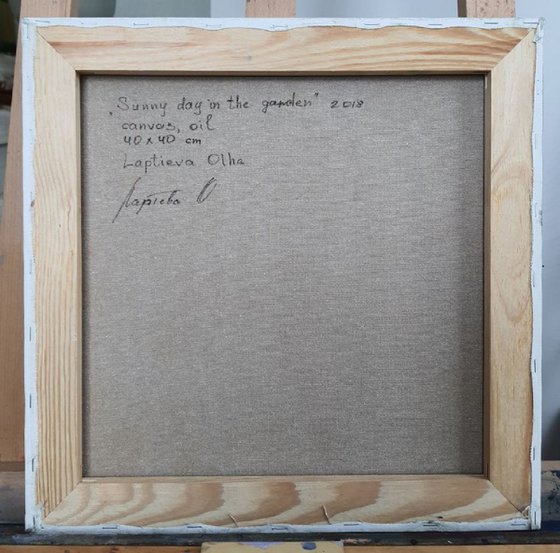 "Sunny day in the garden" 2018
canvas, oil
40 x 40 cm
Laptieva Olha
Лаптєва О